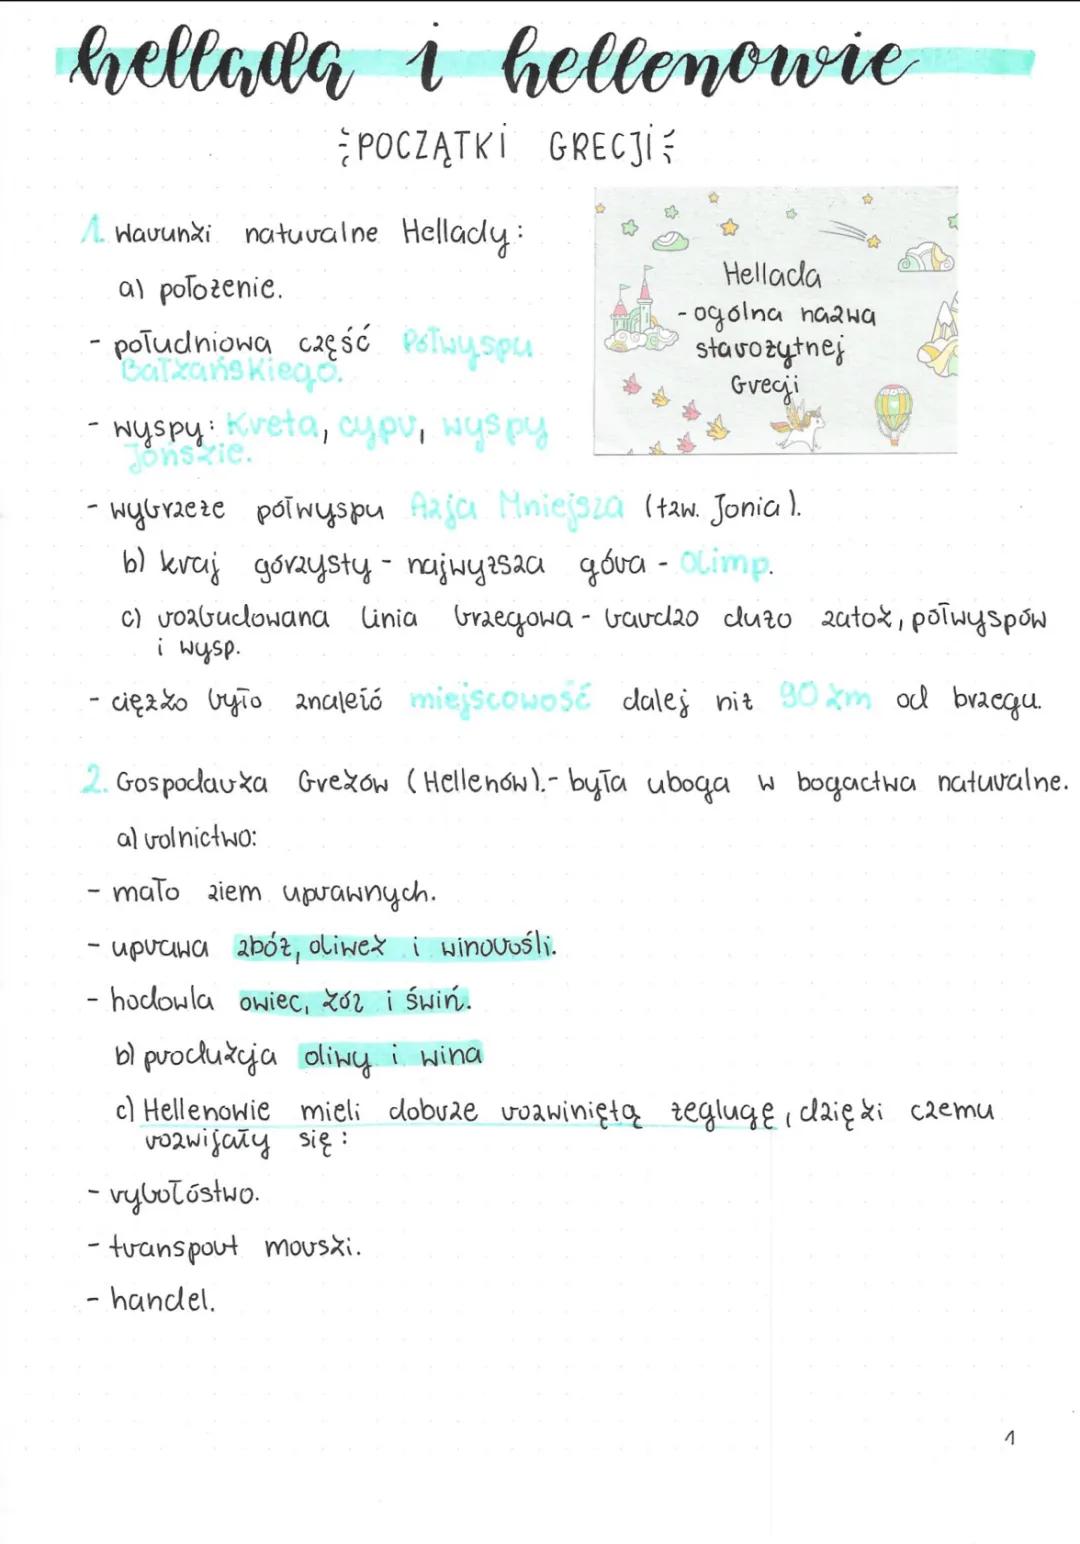 hellada i hellenowie
POCZĄTKI GRECJI
1. Warunki naturalne Hellady:
a) położenie.
- południowa część Półwyspu
Bałkańskiego.
- wyspy: Kreta, cypr, wyspy
Jońskie.
Hellada
- ogólna nazwa
starożytnej
Grecji
- wybrzeże półwyspu Azja Mniejsza (tzw. Jonia).
b) kraj górzysty - najwyższa góra - Olimp.
c) rozbudowana linia brzegowa - bardzo dużo zatok, półwyspów
i wysp.
- ciężko było znaleźć miejscowość dalej niż 90 km od brzegu.
2. Gospodarka Greków (Hellenów).- była uboga w bogactwa naturalne.
a) rolnictwo:
- mało ziem uprawnych.
- uprawa zbóż, oliwek i winorośli.
- hodowla owiec, kóz i świń.
b) produkcja oliwy i wina
c) Hellenowie mieli dobrze rozwiniętą żeglugę, dzięki czemu
rozwijały się:
- rybołóstwo.
- transport morski.
- handel.
1